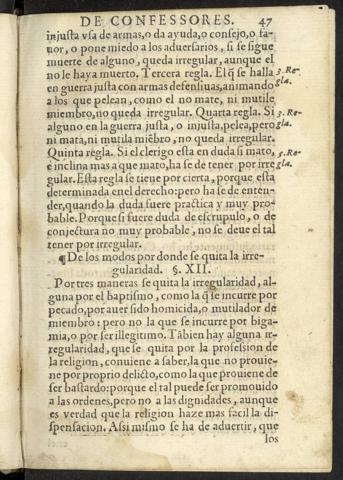 DE CONFESSORES. 47
injusta vsa de armas,o da ayuda,o consejo,o fa-
uor, o pone miedo a los aduersarios, si se sigue
muerte de alguno, queda irregular, aunque el
no le haya muerto. Tercera regla. El q̃ se halla
3. Re-
gla.
en guerra justa con armas defensiuas,animando
a los que pelean, como el no mate, ni mutile
miembro,no queda irregular. Quarta regla. Si
3. Re-
gla.
alguno en la guerra justa, o injusta,pelea,pero
ni mata,ni mutila miẽbro, no queda irregular.
Quinta regla. Si el clerigo esta en duda si mato,
5. Re-
gla.
e inclina mas a que mato,ha se de tener por irre
gular. Esta regla se tiene por cierta, porque esta
determinada en el derecho:pero ha se de enten-
der,quando la duda fuere practica y muy pro-
bable. Porque si fuere duda de escrupulo, o de
conjectura no muy probable, no se deue el tal
tener por irregular.
¶ De los modos por donde se quita la irre-
gularidad. §. XII.
Por tres maneras se quita la irregularidad, al-
guna por el baptismo, como la q̃ se incurre por
pecado,por auer sido homicida,o mutilador de
miembro: pero no la que se incurre por biga-
mia,o por ser illegitimo. Tãbien hay alguna ir-
regularidad, que se quita por la profession de
la religion, conuiene a saber,la que no prouie-
ne por proprio delicto,como la que prouiene de
ser bastardo:porque el tal puede ser promouido
a las ordenes,pero no a las dignidades, aunque
es verdad que la religion haze mas facil la di-
spensacion. Assi mismo se ha de aduertir, que
los